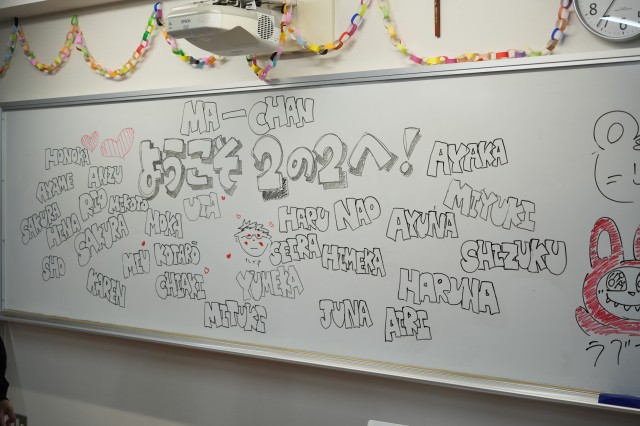 EPSON
MA-CHAN
ようこそ 2の2へ!
HONOKA
AYAKA
AYAME ANZU
MIYUKI
SAKURA RIO MIKOTO UTA
HARU NAO AYUNA
HINA SAKURA MOKA
SEIRA HIMEKA SHIZUKU
SHO MEW KOTARŌ
KAREN CHIAKI YUMEKA HARUNA
MITUKI JUNA AIRI
ラブ